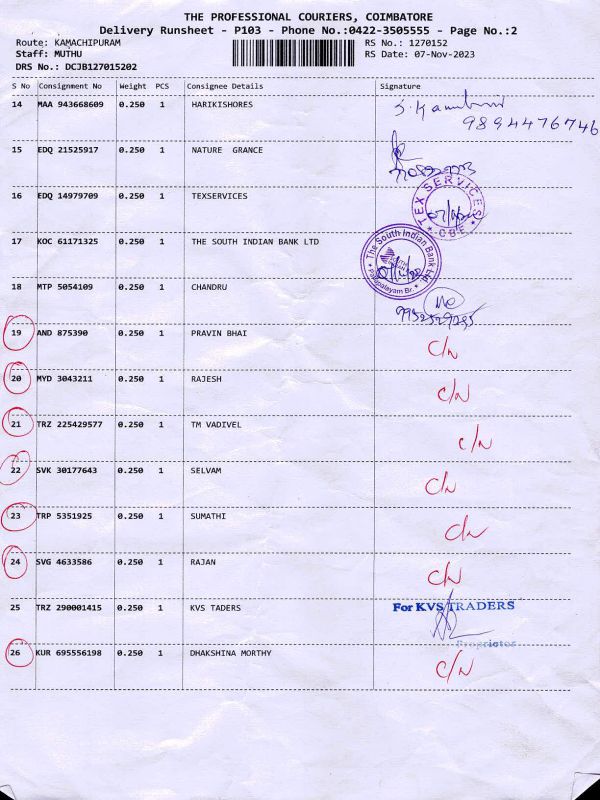 THE PROFESSIONAL COURIERS, COIMBATORE
Delivery Runsheet - P103 - Phone No.:0422-3505555 - Page No.:2
Route: KAMACHIPURAM RS No.: 1270152
Staff: MUTHU RS Date: 07-Nov-2023
DRS No.: DCJB127015202
S No Consignment No Weight PCS Consignee Details Signature
14 MAA 943668609 0.250 1 HARIKISHORES
9894476746
15 EDQ 21525917 0.250 1 NATURE GRANCE
16 EDQ 14979709 0.250 1 TEXSERVICES
TEX SERVICES
CBE
17 KOC 61171325 0.250 1 THE SOUTH INDIAN BANK LTD
The South Indian Bank Ltd.
18 MTP 5054109 0.250 1 CHANDRU
19 AND 875390 0.250 1 PRAVIN BHAI C/N
20 MYD 3043211 0.250 1 RAJESH C/N
21 TRZ 225429577 0.250 1 TM VADIVEL C/N
22 SVK 30177643 0.250 1 SELVAM C/N
23 TRP 5351925 0.250 1 SUMATHI C/N
24 SVG 4633586 0.250 1 RAJAN C/N
25 TRZ 290001415 0.250 1 KVS TADERS For KVS TRADERS
Proprietor
26 KUR 695556198 0.250 1 DHAKSHINA MORTHY C/N